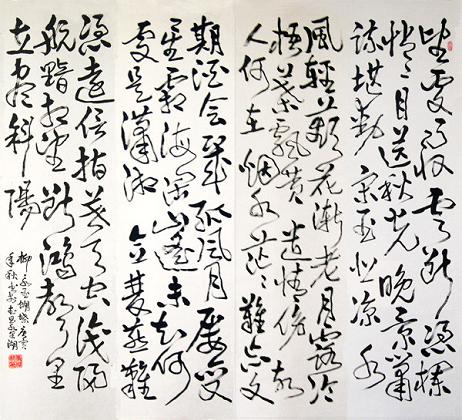 望處雨收雲斷凭欄
悄悄目送秋光晚景蕭
疏堪動宋玉悲凉水
風輕蘋花漸老月露冷
梧葉飄黄遣情傷故
人何在烟水茫茫難忘文
期酒會幾孤風月屢變
星霜海闊山遥未知何
處是瀟湘念雙燕難
憑遠信指暮天空識歸
航黯相望斷鴻聲里
立盡斜陽
柳永玉蝴蝶庚寅
年秋